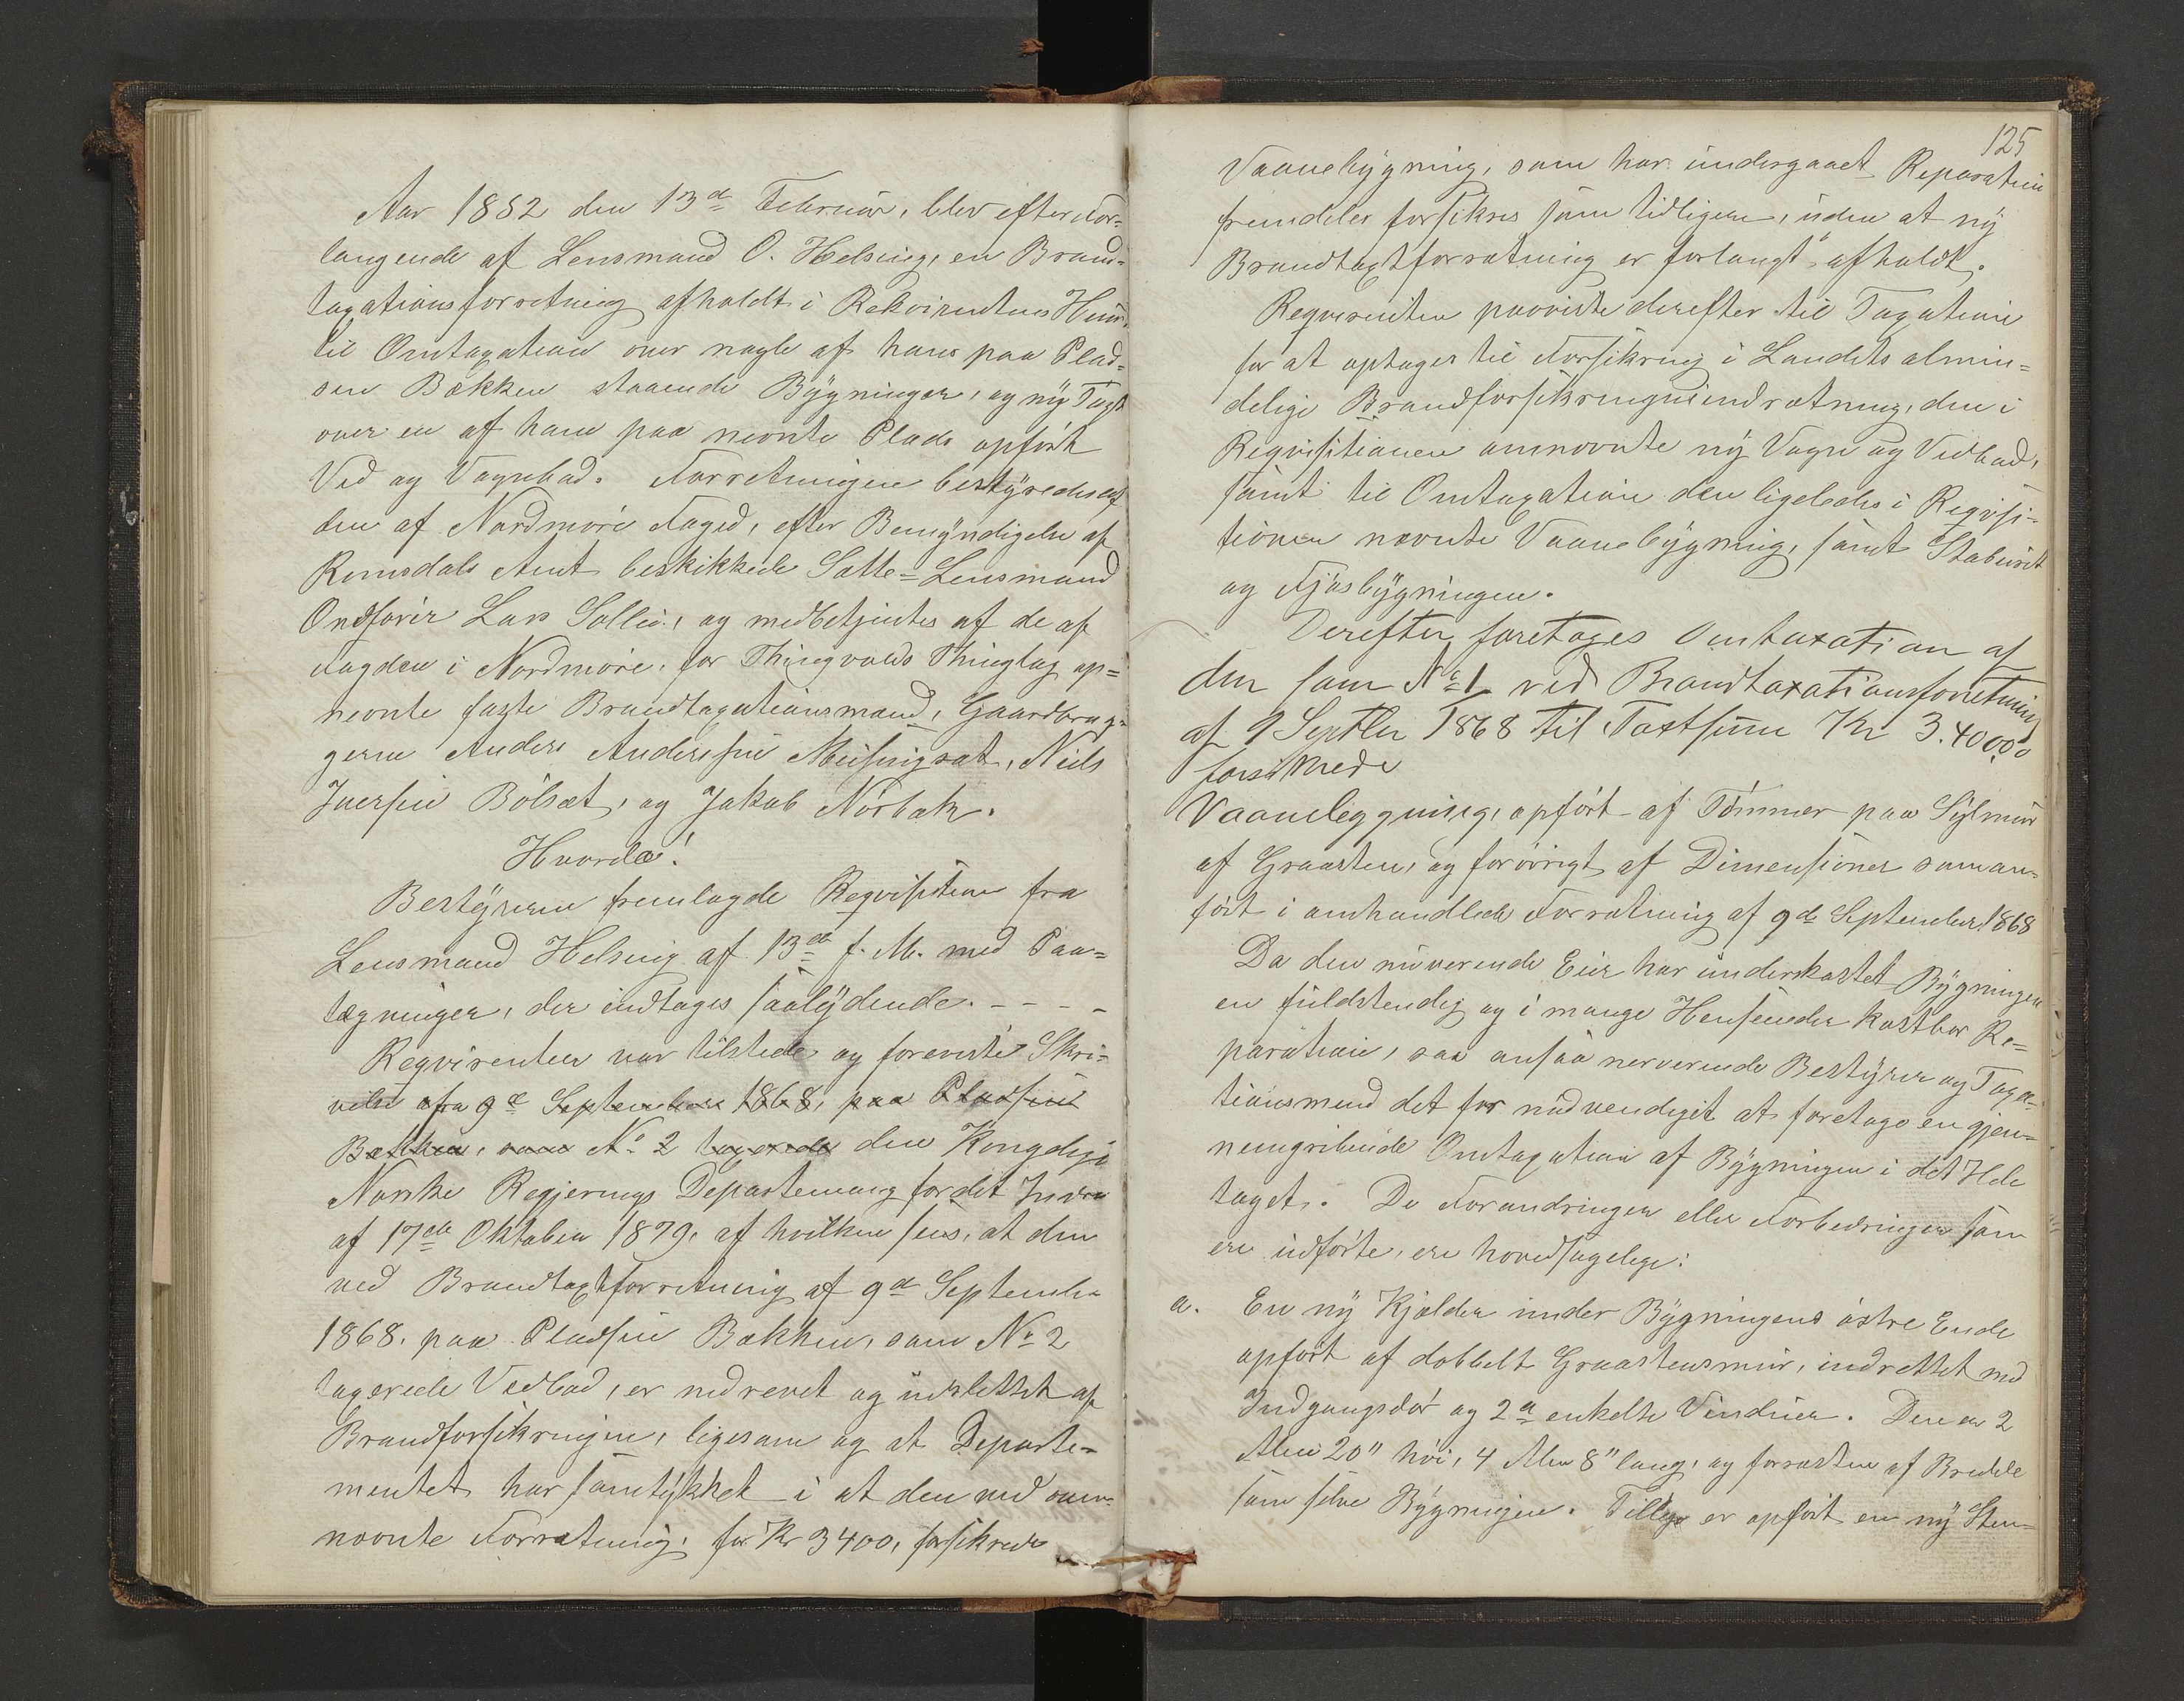 Aar 1882 den 13de Februar, blev efter For-
langende af Lensmand O. Helsing, en Brand-
taxationsforretning afholdt i Rekvirentens Huus
til Omtaxation over nogle af hans paa Plad-
sen Bækken staaende Bygninger, og ny Taxt
over en af ham paa nævnte Plads opført
Ved og Vognbod. Forretningen bestyredes af
den af Nordmøre Foged, efter Bemyndigelse af
Romsdals Amt beskikkede Sætte-Lensmand
Ordfører Lars Sollie, og medbetjentes af de af
Fogden i Nordmøre, for Thingvolds Thinglag op-
nevnte faste Brandtaxationsmænd, Gaardbru-
gerne Anders Andersen Meisingsæt, Niels
Iversen Bølsæt, og Jakob Nørbæk.
Hvorda!
Bestyreren fremlagde Reqvisition fra
Lensmand Helsing af 13de f. M. med Paa-
tægninger, der indtages saalydende. - - - -
Reqvirenten var tilstede og foreviste Skri-
velse fra 9de September 1868, paa Pladsen
Bækken, som No 2 taxerede den Kongelige
Norske Regjerings Departement for det Indre
af 17de Oktober 1879, af hvilken sees, at den
ved Brandtaxtforretning af 9de September
1868, paa Pladsen Bækken, som No 2
taxerede Vedbod, er nedrevet og udslettet af
Brandforsikringen, ligesom og at Departe-
mentet har samtykket i at den ved oven-
nævnte Forretning, for Kr 3400, forsikrede
125
Vaanebygning, som har undergaaet Reparation
fremdeles forsikres som tidligere, uden at ny
Brandtaxtforretning er forlangt afholdt.
Reqvirenten paaviste derefter til Taxation
for at optages til Forsikring i Landets almin-
delige Brandforsikringsindretning, den i
Reqvisitionen omnævnte ny Vogn og Vedbod,
samt til Omtaxation den ligeledes i Reqvisi-
tionen nævnte Vaanebygning, samt Staburet
og Fjøsbygningen.
Derefter foretages Omtaxation af
den som No 1 ved Brandtaxationsforretning
af 9 Septbr 1868 til Taxtsum Kr 3.400,00
forsikrede
Vaanebygning, opført af Tømmer paa Sylmur
af Graasten, og forøvrigt af Dimensioner som an-
ført i omhandlede Forretning af 9de September 1868
Da den nuværende Eier har underkastet Bygningen
en fuldstendig og i mange Henseender kostbar Re-
paration, saa ansaa nerverende Bestyrer og Taxa-
tionsmend det for nødvendigt at foretage en gjen-
nemgribende Omtaxation af Bygningen i det Hele
taget. De Forandringer eller Forbedringer som
ere udførte, ere hovedsagelige:
a. En ny Kjælder under Bygningens østre Ende
opført af dobbelt Graastensmur, indrettet med
Indgangsdør og 2de enkelte Vinduer. Den er 2
Alen 20" høi, 4 Alen 8" lang, og forresten af Bredde
som selve Bygningen. Tillige er opført en ny Sten-